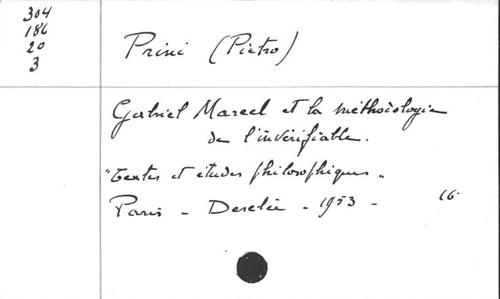 304
186
20
3
Prini (Pietro)
Gabriel Marcel et la méthodologie
de l'invérifiable.
"Textes et études philosophiques"
Paris - Desclée - 1953 - 16